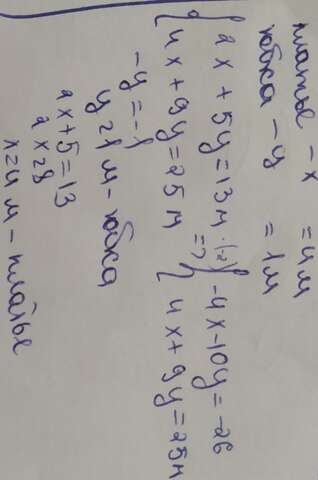 платье - x = 4м
юбка - y = 1м
{ 2x + 5y = 13м ·(-2) { -4x - 10y = -26
{ 4x + 9y = 25м => { 4x + 9y = 25м
-y = -1
y = 1 м - юбка
2x + 5 = 13
2x = 8
x = 4 м - платье